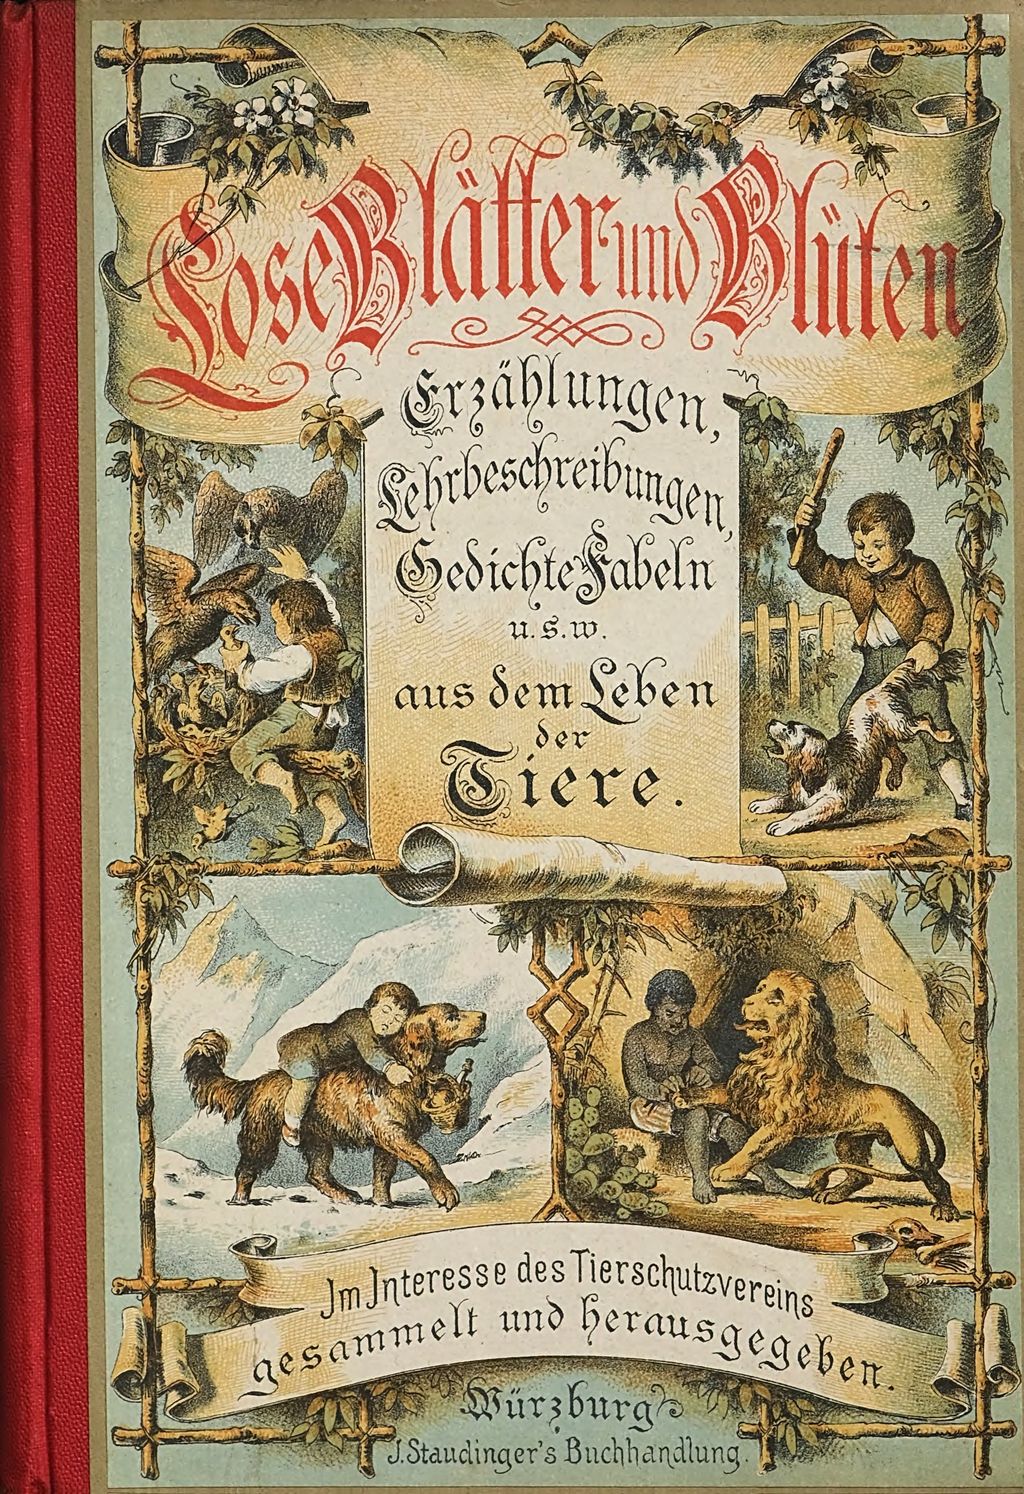 Lose Blätter und Blüten
Erzählungen,
Lehrbeschreibungen,
Gedichte Fabeln
u.s.w.
aus dem Leben
der
Tiere.
Im Interesse des Tierschutzvereins
gesammelt und herausgegeben.
Würzburg
J. Staudinger's Buchhandlung.